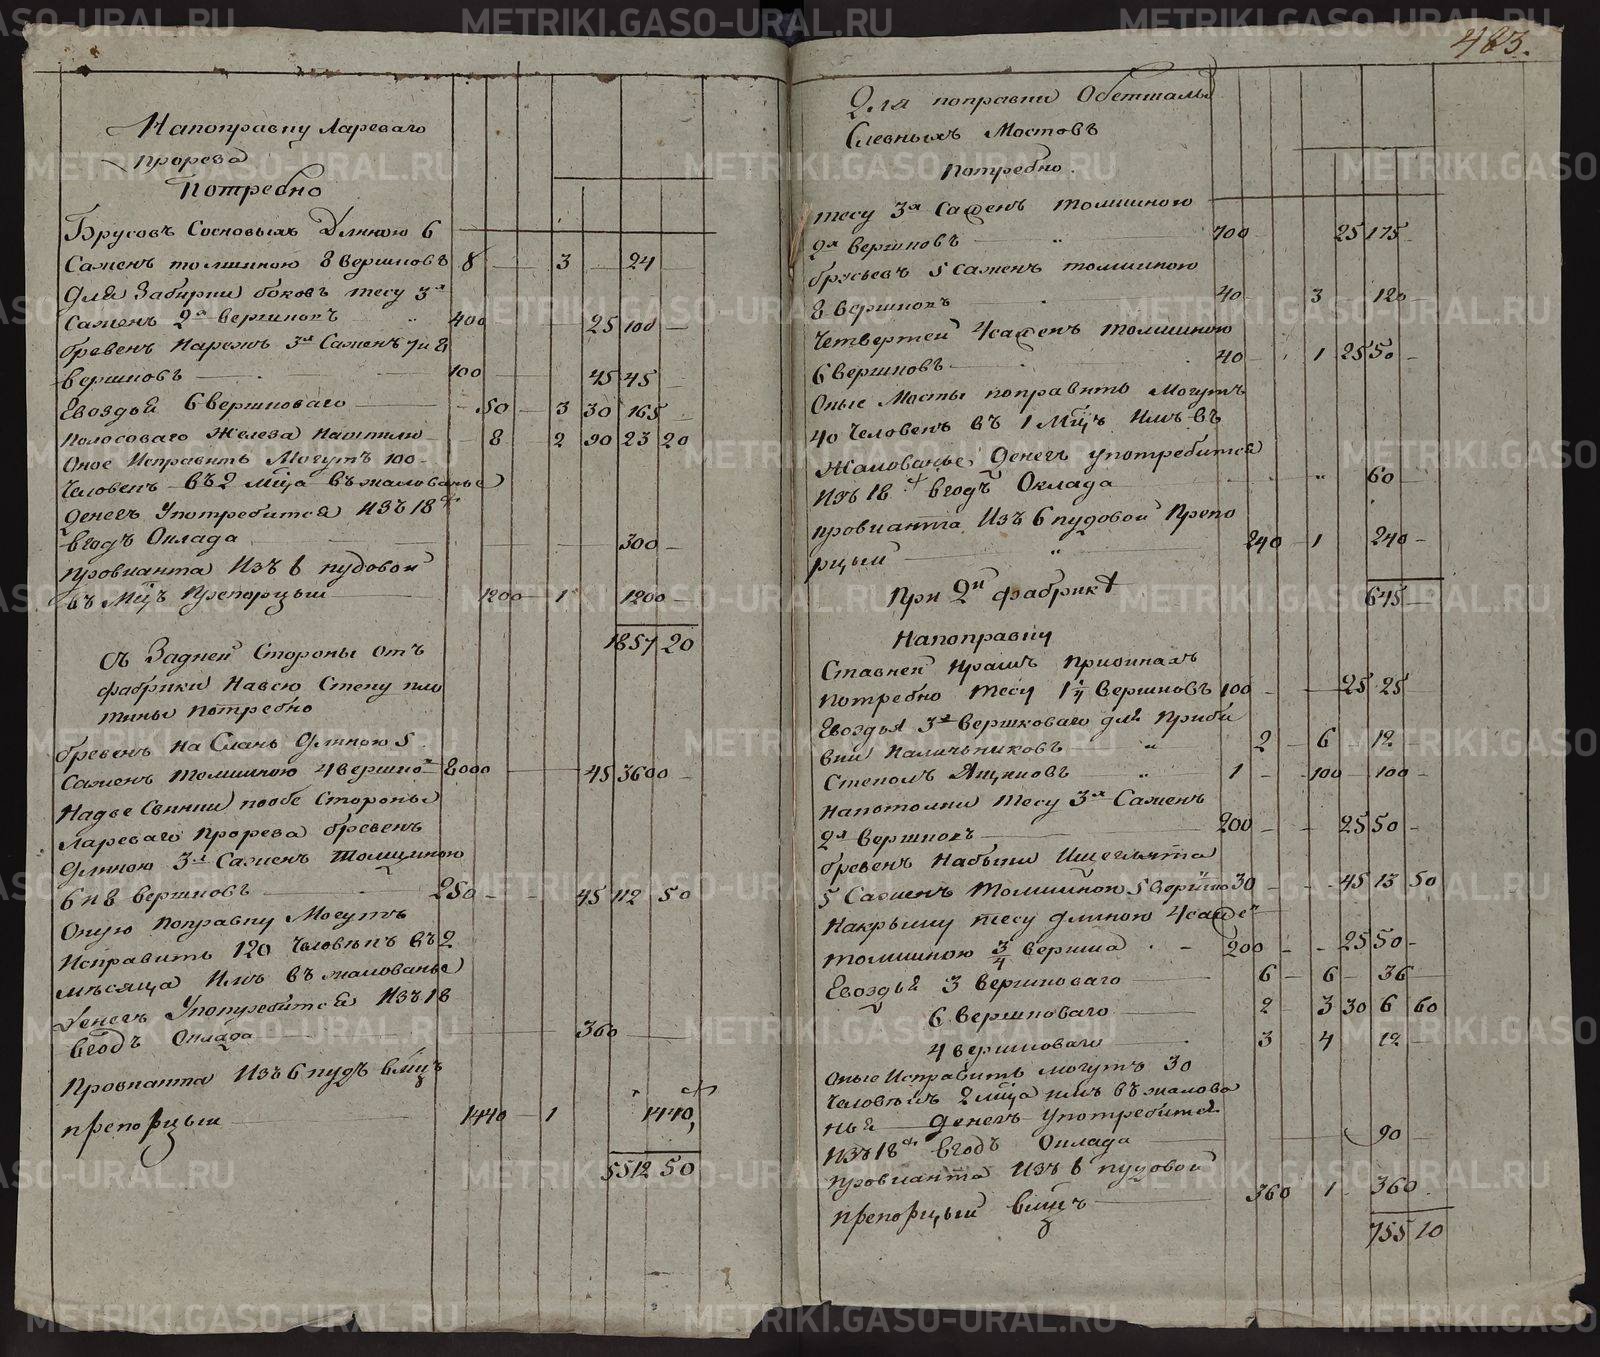 483.
Напоправку Лареваго
прорева
Потребно
Брусовъ Сосновыхъ Длиною 6
Саженъ толщиною 8 вершковъ 8 3 24
Для Забирки боковъ тесу 3х
Саженъ 2х вершковъ 400 25 100
бревенъ Нарежъ 3х Саженъ 7 и 8
вершковъ 100 45 45
Гвоздей 6 вершковаго 50 3 30 165
полосоваго Железа 8 2 90 23 20
Оное Исправить Могутъ 100
Человекъ въ 2 мца въ жалованье
денегъ Употребится Изъ 18
вгодъ Оклада 300
провианта Изъ 6 пудовой
въ Мцъ Препорцыи 1200 1 1200
1857 20
Съ Задней Стороны отъ
фабрики Навсю Стену пло
тины потребно
бревенъ на Слань Длиною 5
Саженъ толщиною 4 вершко 8000 45 3600
Надве Свинки пообе Стороны
Лареваго прорева бревенъ
Длиною 3х Саженъ толщиною
6 и 8 вершковъ 250 45 112 50
Оную поправку Могутъ
Исправить 120 Человекъ въ 2
месяца Имъ въ жалованье
Денегъ Употребится Изъ 18
вгодъ Оклада 360
Провианта Изъ 6 пудъ вмцъ
препорцыи 1440 1 1440
5512 50
Для поправки Обетшалы
Сливныхъ Мостовъ
Потребно.
тесу 3х Саженъ толщиною
2х вершковъ 700 25 175
брусьевъ 5 саженъ толщиною
8 вершковъ 40 3 120
Четвертей 4 саженъ толщиною
6 вершковъ 40 1 25 50
Оные Мосты поправить Могутъ
40 Человекъ въ 1 Мцъ Имъ въ
Жалованье, Денегъ употребится
Изъ 18 вгодъ Оклада 60
провианта Изъ 6 пудовой Препо
рцыи 240 1 240
645
При 2й фабрике
Напоправку
Ставней Крашъ
потребно тесу 1 1/4 вершковъ 100 25 25
Гвоздья 3х вершковаго для приби
вки Наличниковъ 2 6 12
Стеколъ Ящиковъ 1 100 100
Напотолки тесу 3х Саженъ
2х вершковъ 200 25 50
бревенъ
5 Саженъ толщиной 5 вершко 30 45 13 50
Накрышу тесу длиною 4 саже
толщиною 3/4 вершка 200 25 50
Гвоздей 3 вершковаго 6 6 36
6 вершковаго 2 3 30 6 60
4 вершковаго 3 4 12
Оные Исправить могутъ 30
Человекъ 2 мца имъ въ жалова
нья Денегъ Употребится
Изъ 18 вгодъ Оклада 90
провианта Изъ 6 пудовой
препорцыи вмцъ 360 1 360
755 10
METRIKI.GASO-URAL.RU